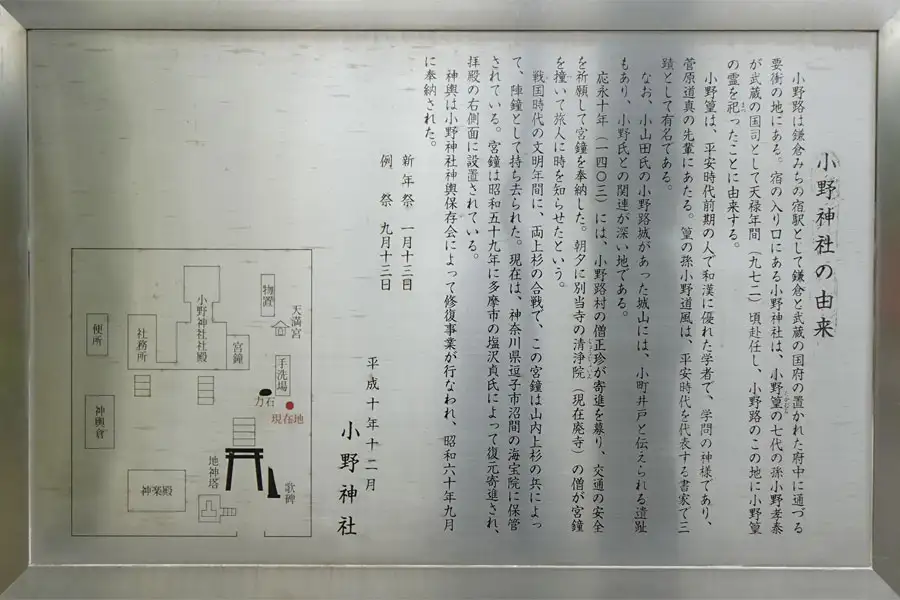 小野神社の由来
小野路は鎌倉みちの宿駅として鎌倉と武蔵の国府の置かれた府中に通づる
要衝の地にある。宿の入り口にある小野神社は、小野篁の七代の孫小野孝泰
が武蔵の国司として天禄年間（九七二）頃赴任し、小野路のこの地に小野篁
の霊を祀ったことに由来する。
小野篁は、平安時代前期の人で和漢に優れた学者で、学問の神様であり、
菅原道真の先輩にあたる。篁の孫小野道風は、平安時代を代表する書家で三
蹟として有名である。
なお、小山田氏の小野路城があった城山には、小町井戸と伝えられる遺趾
もあり、小野氏との関連が深い地である。
応永十年（一四〇三）には、小野路村の僧正珍が寄進を募り、交通の安全
を祈願して宮鐘を奉納した。朝夕に別当寺の清浄院（現在廃寺）の僧が宮鐘
を撞いて旅人に時を知らせたという。
戦国時代の文明年間に、両上杉の合戦で、この宮鐘は山内上杉の兵によっ
て、陣鐘として持ち去られた。現在は、神奈川県逗子市沼間の海宝院に保管
されている。宮鐘は昭和五十九年に多摩市の塩沢貞氏によって復元寄進され、
拝殿の右側面に設置されている。
神輿は小野神社神輿保存会によって修復事業が行なわれ、昭和六十年九月
に奉納された。
新年祭　一月十三日
例　祭　九月十三日
平成十年十二月
小野神社
物置
天満宮
小野神社社殿
宮鐘
社務所
便所
手洗場
力石
現在地
神輿倉
歌碑
地神塔
神楽殿